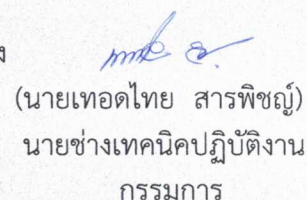 ง
(นายเทอดไทย สารพิชญ์)
นายช่างเทคนิคปฏิบัติงาน
กรรมการ